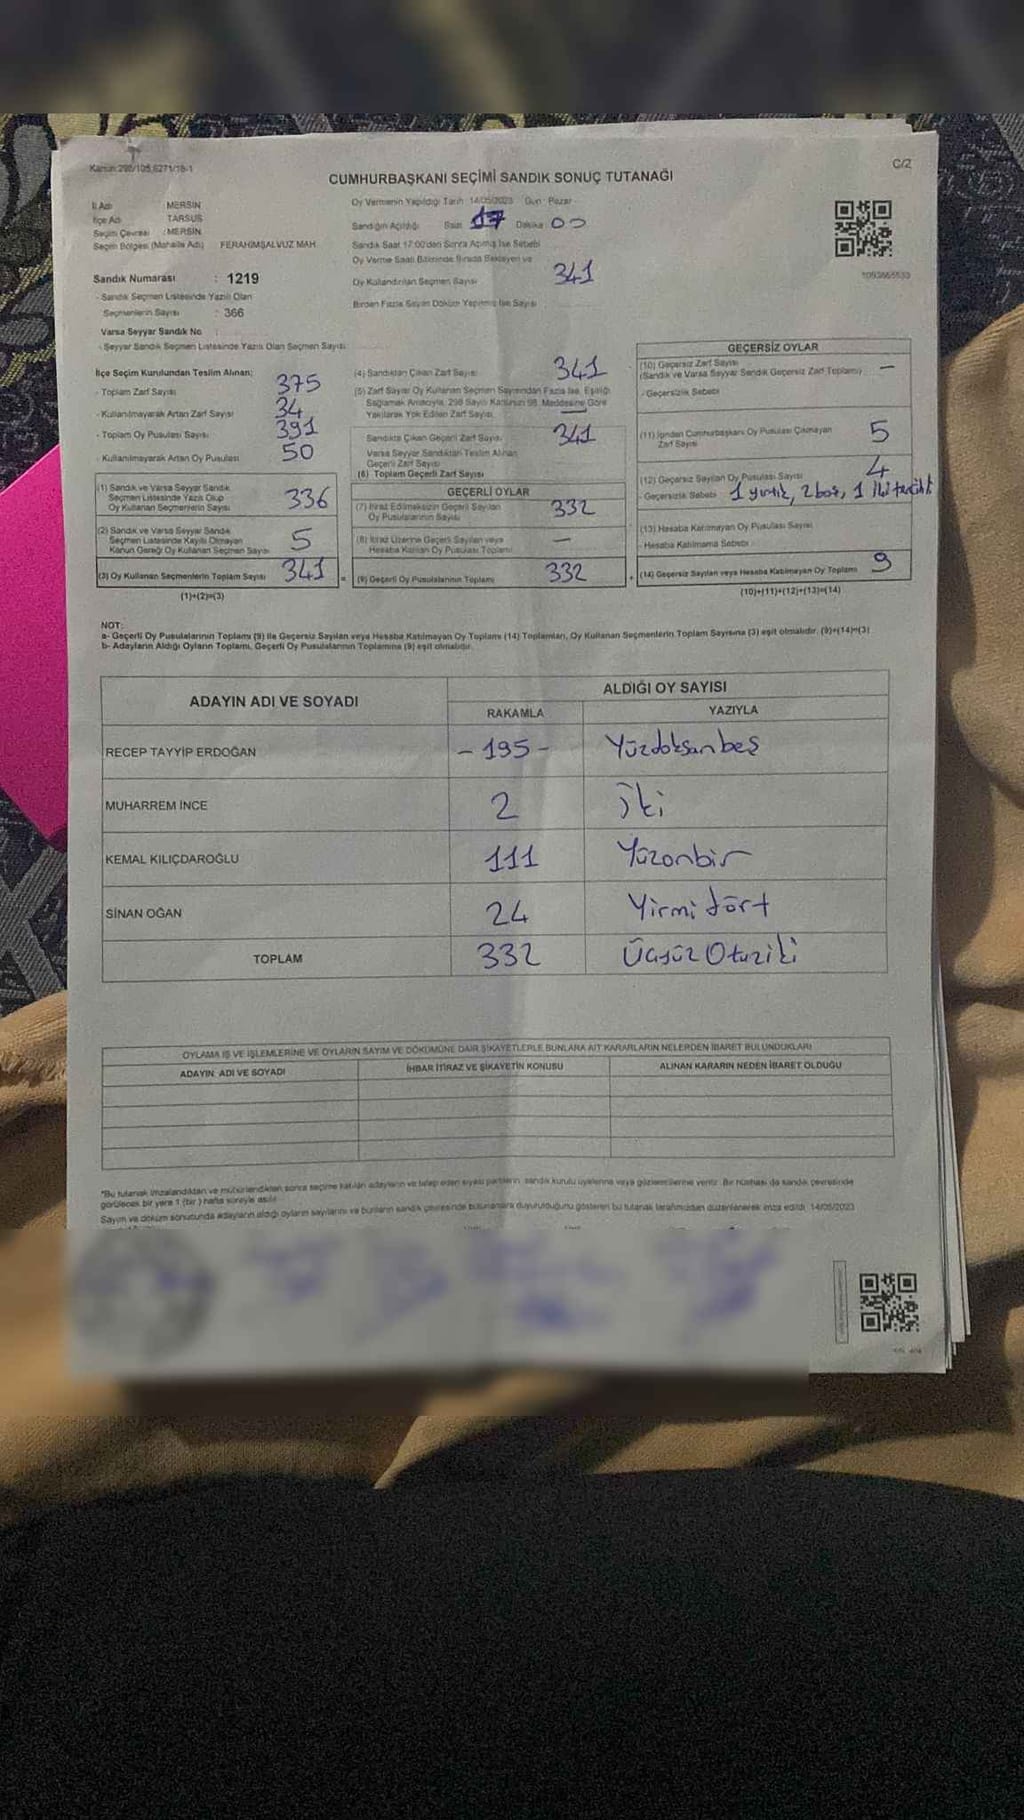 Kanun:298/105,6271/18-1
C/2
CUMHURBAŞKANI SEÇİMİ SANDIK SONUÇ TUTANAĞI
İl Adı : MERSİN
İlçe Adı : TARSUS
Seçim Çevresi : MERSİN
Seçim Bölgesi (Mahalle Adı) : FERAHİMŞALVUZ MAH
Sandık Numarası : 1219
- Sandık Seçmen Listesinde Yazılı Olan
Seçmenlerin Sayısı : 366
Varsa Seyyar Sandık No
- Seyyar Sandık Seçmen Listesinde Yazılı Olan Seçmen Sayısı
Oy Vermenin Yapıldığı Tarih 14/05/2023 Gün : Pazar
Sandığın Açıldığı Saat 17 Dakika 00
Sandık Saat 17:00'den Sonra Açılmış İse Sebebi
Oy Verme Saati Bitiminde Sırada Bekleyen ve
Oy Kullandırılan Seçmen Sayısı 341
Birden Fazla Sayım Döküm Yapılmış İse Sayısı
İlçe Seçim Kurulundan Teslim Alınan;
- Toplam Zarf Sayısı 375
- Kullanılmayarak Artan Zarf Sayısı 34
- Toplam Oy Pusulası Sayısı 391
- Kullanılmayarak Artan Oy Pusulası 50
(1) Sandık ve Varsa Seyyar Sandık
Seçmen Listesinde Yazılı Olup
Oy Kullanan Seçmenlerin Sayısı 336
(2) Sandık ve Varsa Seyyar Sandık
Seçmen Listesinde Kayıtlı Olmayan
Kanun Gereği Oy Kullanan Seçmen Sayısı 5
(3) Oy Kullanan Seçmenlerin Toplam Sayısı 341
(1)+(2)=(3)
(4) Sandıktan Çıkan Zarf Sayısı 341
(5) Zarf Sayısı Oy Kullanan Seçmen Sayısından Fazla İse, Eşitliği
Sağlamak Amacıyla, 298 Sayılı Kanunun 98. Maddesine Göre
Yakılarak Yok Edilen Zarf Sayısı —
Sandıkta Çıkan Geçerli Zarf Sayısı 341
Varsa Seyyar Sandıktan Teslim Alınan
Geçerli Zarf Sayısı
(6) Toplam Geçerli Zarf Sayısı
GEÇERLİ OYLAR
(7) İtiraz Edilmeksizin Geçerli Sayılan
Oy Pusulalarının Sayısı 332
(8) İtiraz Üzerine Geçerli Sayılan veya
Hesaba Katılan Oy Pusulası Toplamı —
= (9) Geçerli Oy Pusulalarının Toplamı 332
GEÇERSİZ OYLAR
(10) Geçersiz Zarf Sayısı
(Sandık ve Varsa Seyyar Sandık Geçersiz Zarf Toplamı) —
- Geçersizlik Sebebi
(11) İçinden Cumhurbaşkanı Oy Pusulası Çıkmayan
Zarf Sayısı 5
(12) Geçersiz Sayılan Oy Pusulası Sayısı 4
- Geçersizlik Sebebi 1 yırtık, 2 boş, 1 iki tercih
(13) Hesaba Katılmayan Oy Pusulası Sayısı
- Hesaba Katılmama Sebebi
+ (14) Geçersiz Sayılan veya Hesaba Katılmayan Oy Toplamı 9
(10)+(11)+(12)+(13)=(14)
NOT:
a- Geçerli Oy Pusulalarının Toplamı (9) ile Geçersiz Sayılan veya Hesaba Katılmayan Oy Toplamı (14) Toplamları, Oy Kullanan Seçmenlerin Toplam Sayısına (3) eşit olmalıdır. (9)+(14)=(3)
b- Adayların Aldığı Oyların Toplamı, Geçerli Oy Pusulalarının Toplamına (9) eşit olmalıdır.
ADAYIN ADI VE SOYADI
ALDIĞI OY SAYISI
RAKAMLA YAZIYLA
RECEP TAYYİP ERDOĞAN - 195 - Yüzdoksanbeş
MUHARREM İNCE 2 iki
KEMAL KILIÇDAROĞLU 111 Yüzonbir
SİNAN OĞAN 24 Yirmi dört
TOPLAM 332 ÜçyüzOtuziki
OYLAMA İŞ VE İŞLEMLERİNE VE OYLARIN SAYIM VE DÖKÜMÜNE DAİR ŞİKAYETLERLE BUNLARA AİT KARARLARIN NELERDEN İBARET BULUNDUKLARI
ADAYIN ADI VE SOYADI İHBAR İTİRAZ VE ŞİKAYETİN KONUSU ALINAN KARARIN NEDEN İBARET OLDUĞU
*Bu tutanak imzalandıktan ve mühürlendikten sonra seçime katılan adayların ve talep eden siyasi partilerin sandık kurulu üyelerine veya gözlemcilerine verilir. Bir nüshası da sandık çevresinde
görülecek bir yere 1 (bir) hafta süreyle asılır.
Sayım ve döküm sonucunda adayların aldığı oyların sayılarını ve bunların sandık çevresinde bulunanlara duyurulduğunu gösteren bu tutanak tarafımızdan düzenlenerek imza edildi. 14/05/2023